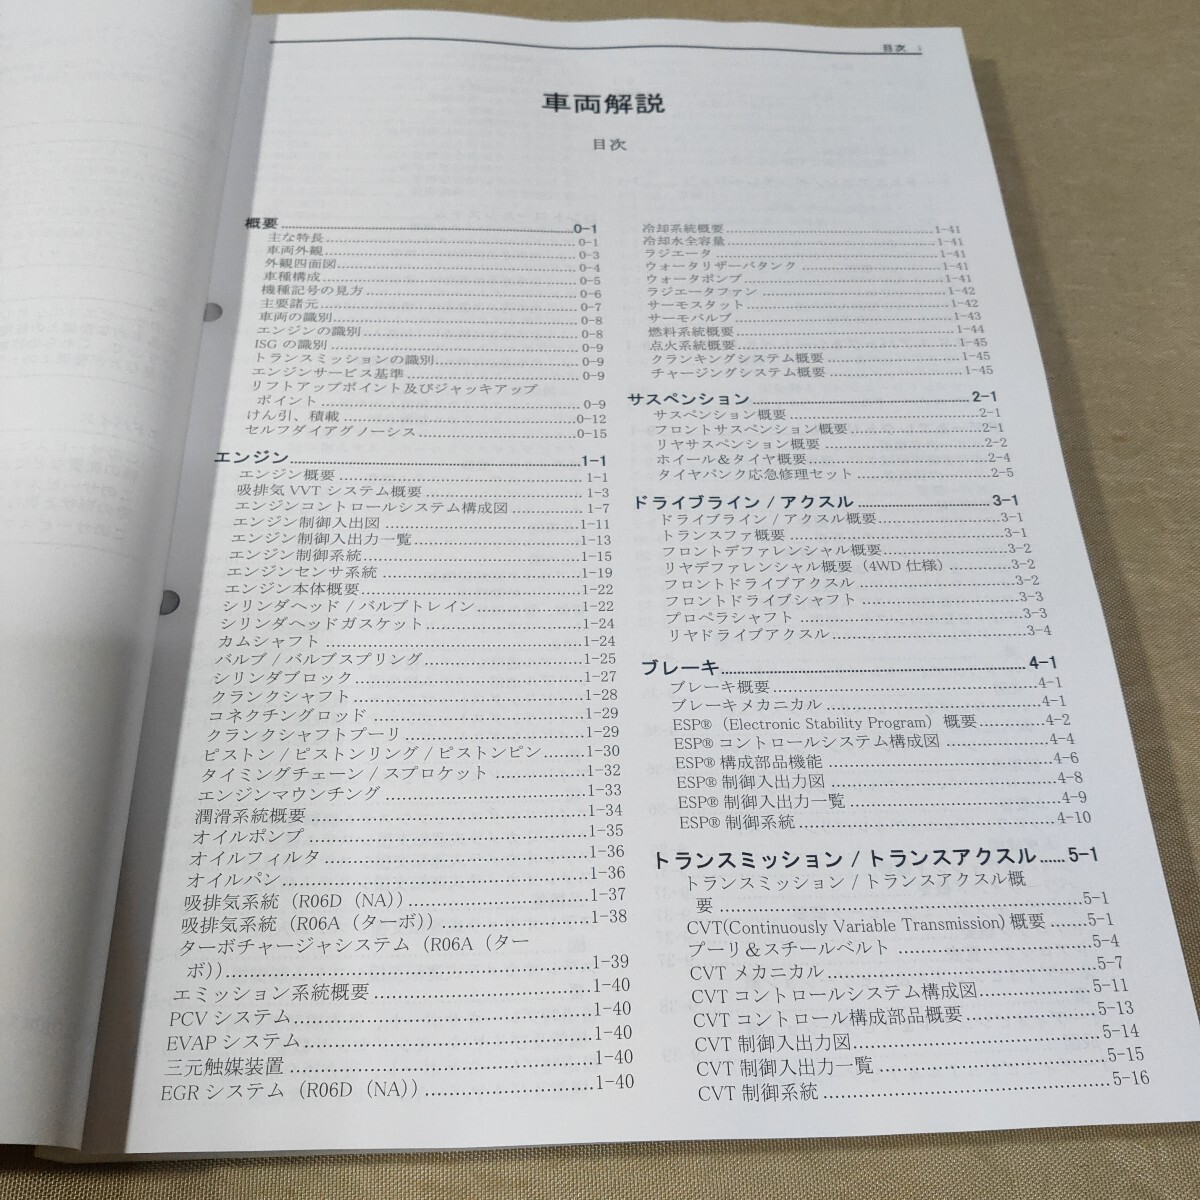 目次 i
車両解説
目次
概要 0-1
主な特長 0-1
車両外観 0-3
外観四面図 0-4
車種構成 0-5
機種記号の見方 0-6
主要諸元 0-7
車両の識別 0-8
エンジンの識別 0-8
ISG の識別 0-9
トランスミッションの識別 0-9
エンジンサービス基準 0-9
リフトアップポイント及びジャッキアップ
ポイント 0-9
けん引、積載 0-12
セルフダイアグノーシス 0-15
エンジン 1-1
エンジン概要 1-1
吸排気 VVT システム概要 1-3
エンジンコントロールシステム構成図 1-7
エンジン制御入出図 1-11
エンジン制御入出力一覧 1-13
エンジン制御系統 1-15
エンジンセンサ系統 1-19
エンジン本体概要 1-22
シリンダヘッド / バルブトレイン 1-22
シリンダヘッドガスケット 1-24
カムシャフト 1-24
バルブ / バルブスプリング 1-25
シリンダブロック 1-27
クランクシャフト 1-28
コネクチングロッド 1-29
クランクシャフトプーリ 1-29
ピストン / ピストンリング / ピストンピン 1-30
タイミングチェーン / スプロケット 1-32
エンジンマウンチング 1-33
潤滑系統概要 1-34
オイルポンプ 1-35
オイルフィルタ 1-36
オイルパン 1-36
吸排気系統（R06D（NA）） 1-37
吸排気系統（R06A（ターボ）） 1-38
ターボチャージャシステム（R06A（ター
ボ）） 1-39
エミッション系統概要 1-40
PCV システム 1-40
EVAP システム 1-40
三元触媒装置 1-40
EGR システム（R06D（NA）） 1-40
冷却系統概要 1-41
冷却水全容量 1-41
ラジエータ 1-41
ウォータリザーバタンク 1-41
ウォータポンプ 1-41
ラジエータファン 1-42
サーモスタット 1-42
サーモバルブ 1-43
燃料系統概要 1-44
点火系統概要 1-45
クランキングシステム概要 1-45
チャージングシステム概要 1-45
サスペンション 2-1
サスペンション概要 2-1
フロントサスペンション概要 2-1
リヤサスペンション概要 2-2
ホイール＆タイヤ概要 2-4
タイヤパンク応急修理セット 2-5
ドライブライン / アクスル 3-1
ドライブライン / アクスル概要 3-1
トランスファ概要 3-1
フロントデファレンシャル概要 3-2
リヤデファレンシャル概要（4WD 仕様） 3-2
フロントドライブアクスル 3-2
フロントドライブシャフト 3-3
プロペラシャフト 3-3
リヤドライブアクスル 3-4
ブレーキ 4-1
ブレーキ概要 4-1
ブレーキメカニカル 4-1
ESP®（Electronic Stability Program）概要 4-2
ESP® コントロールシステム構成図 4-4
ESP® 構成部品機能 4-6
ESP® 制御入出力図 4-8
ESP® 制御入出力一覧 4-9
ESP® 制御系統 4-10
トランスミッション / トランスアクスル 5-1
トランスミッション / トランスアクスル概
要 5-1
CVT(Continuously Variable Transmission) 概要 5-1
プーリ＆スチールベルト 5-4
CVT メカニカル 5-7
CVT コントロールシステム構成図 5-11
CVT コントロール構成部品概要 5-13
CVT 制御入出力図 5-14
CVT 制御入出力一覧 5-15
CVT 制御系統 5-16